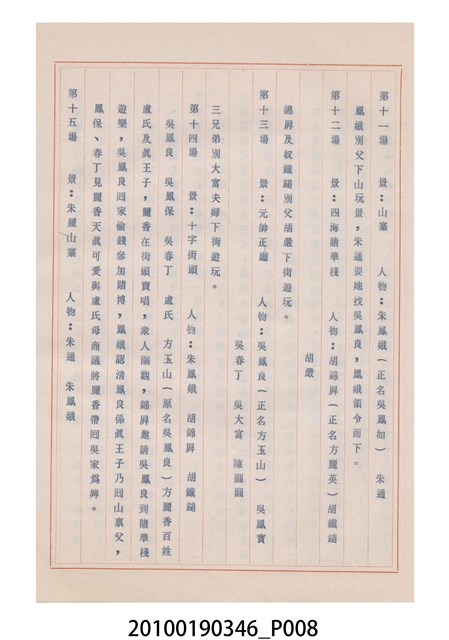 第十一場　景：山寨　人物：朱鳳娥（正名吳鳳如）　朱通
鳳娥別父下山玩景，朱通要她找吳鳳良，鳳娥領令而下。
第十二場　景：四海賭華棧　人物：胡錦屏（正名方麗英）胡鐵鎚
胡嚴
錦屏及奴鐵鎚別父胡嚴下街遊玩。
第十三場　景：元帥正廳　人物：吳鳳良（正名方玉山）　吳鳳寶
吳春丁　吳大富　陳圓圓
三兄弟別大富夫婦下街遊玩。
第十四場　景：十字街頭　人物：朱鳳娥　胡錦屏　胡鐵鎚
吳鳳良　吳鳳保　吳春丁　盧氏　方玉山（原名吳鳳良）方麗香百姓
盧氏及眞王子，麗香在街頭賣唱，衆人圍觀，錦屏邀請吳鳳良到賭華棧
遊樂，吳鳳良囘家偷錢參加賭博，鳳娥認清鳳良係眞王子乃囘山禀父，
鳳保、春丁見麗香天眞可愛與盧氏母商議將麗香帶囘吳家爲婢。
第十五場　景：朱羅山寨　人物：朱通　朱鳳娥
20100190346_P008